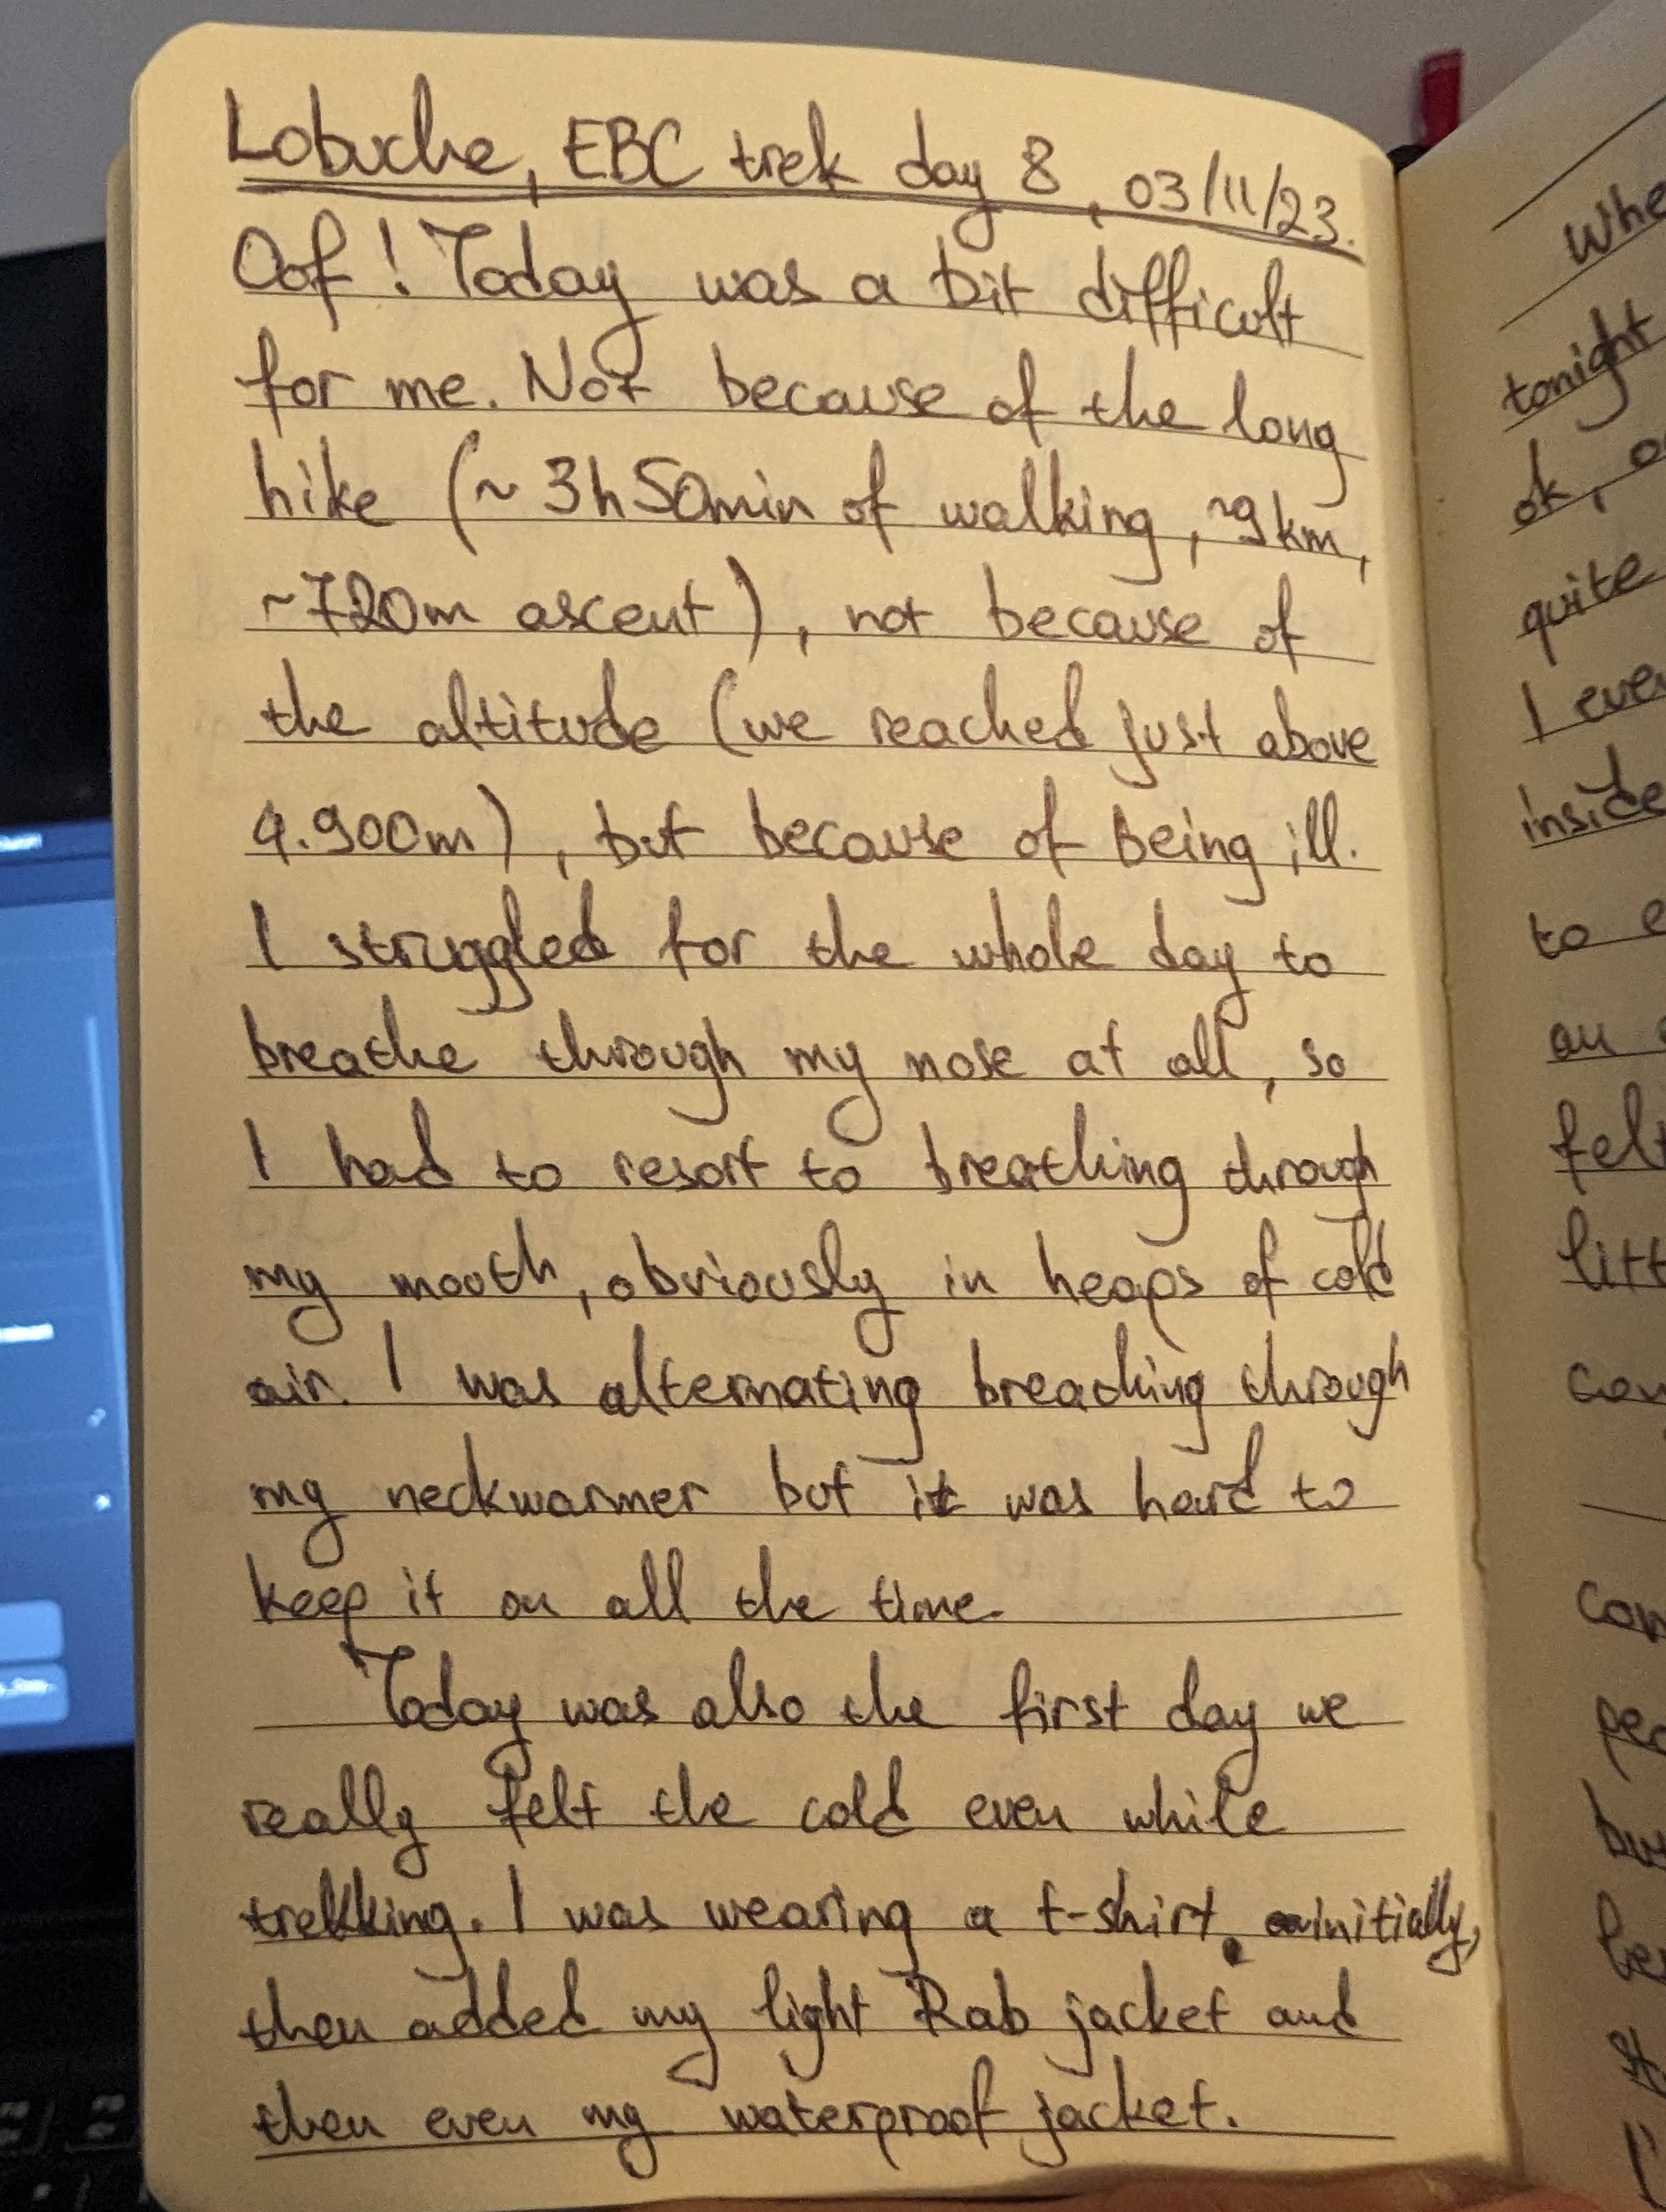 Lobuche, EBC trek day 8, 03/11/23.
Oof! Today was a bit difficult
for me. Not because of the long
hike (~3h50min of walking, ~9km,
~720m ascent), not because of
the altitude (we reached just above
4.900m), but because of being ill.
I struggled for the whole day to
breathe through my nose at all, so
I had to resort to breathing through
my mouth, obviously in heaps of cold
air. I was alternating breathing through
my neckwarmer but it was hard to
keep it on all the time.
Today was also the first day we
really felt the cold even while
trekking. I was wearing a t-shirt initially,
then added my light Rab jacket and
then even my waterproof jacket.
tonight
ok,
quite
I
inside
to